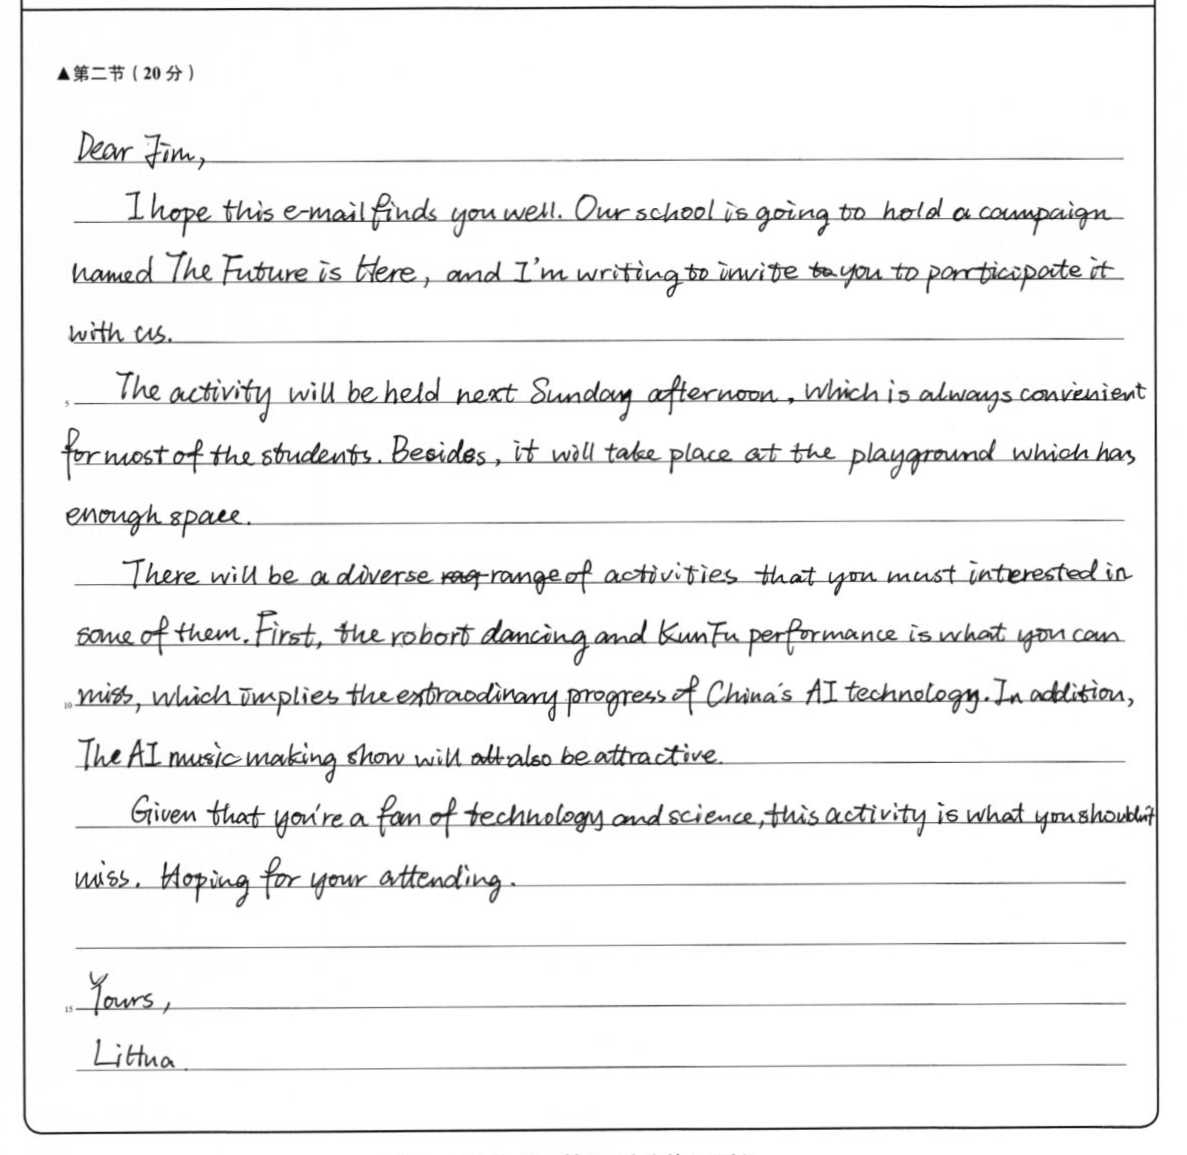 ▲第二节（20分）
Dear Jim,
I hope this e-mail finds you well. Our school is going to hold a campaign
named The Future is Here, and I'm writing to invite to you to participate it
with us.
5 The activity will be held next Sunday afternoon, which is always convenient
for most of the students. Besides, it will take place at the playground which has
enough space.
There will be a diverse range of activities that you must interested in
some of them. First, the robort dancing and KunFu performance is what you can
10 miss, which implies the extraodinary progress of China's AI technology. In addition,
The AI music making show will also be attractive.
Given that you're a fan of technology and science, this activity is what you shouldn't
miss. Hoping for your attending.
15 Yours,